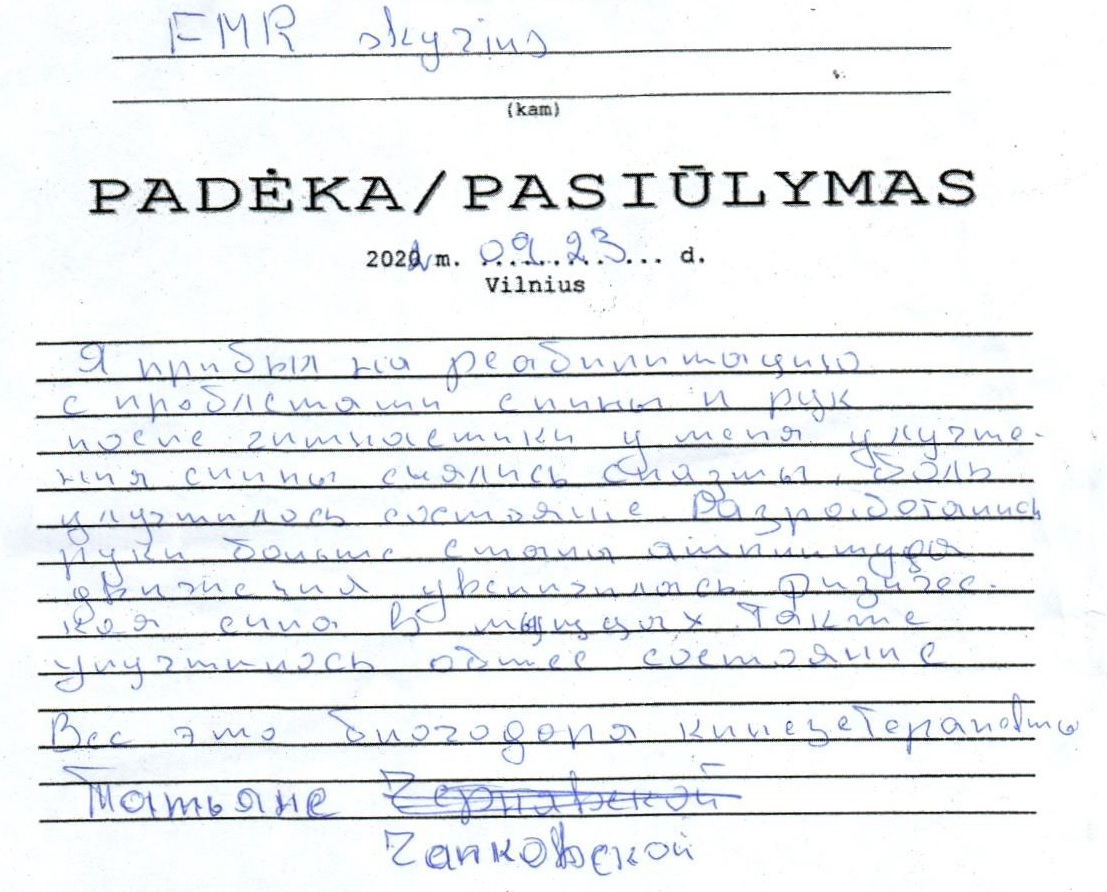 FMR skyrius
(kam)
PADĖKA/PASIŪLYMAS
2022 m. 09.23 d.
Vilnius
Я прибыл на реабилитацию
с проблемами спины и рук
после гимнастики у меня улучше-
ния спины снялись спазмы, боль
улучшилось состояние. Разработались
руки больше стала амплитуда
движения увеличилась физичес-
кая сила в мышцах. Также
улучшилось общее состояние
Все это благодаря кинезетерапевты
Татьяне Чернявской
Чапковской